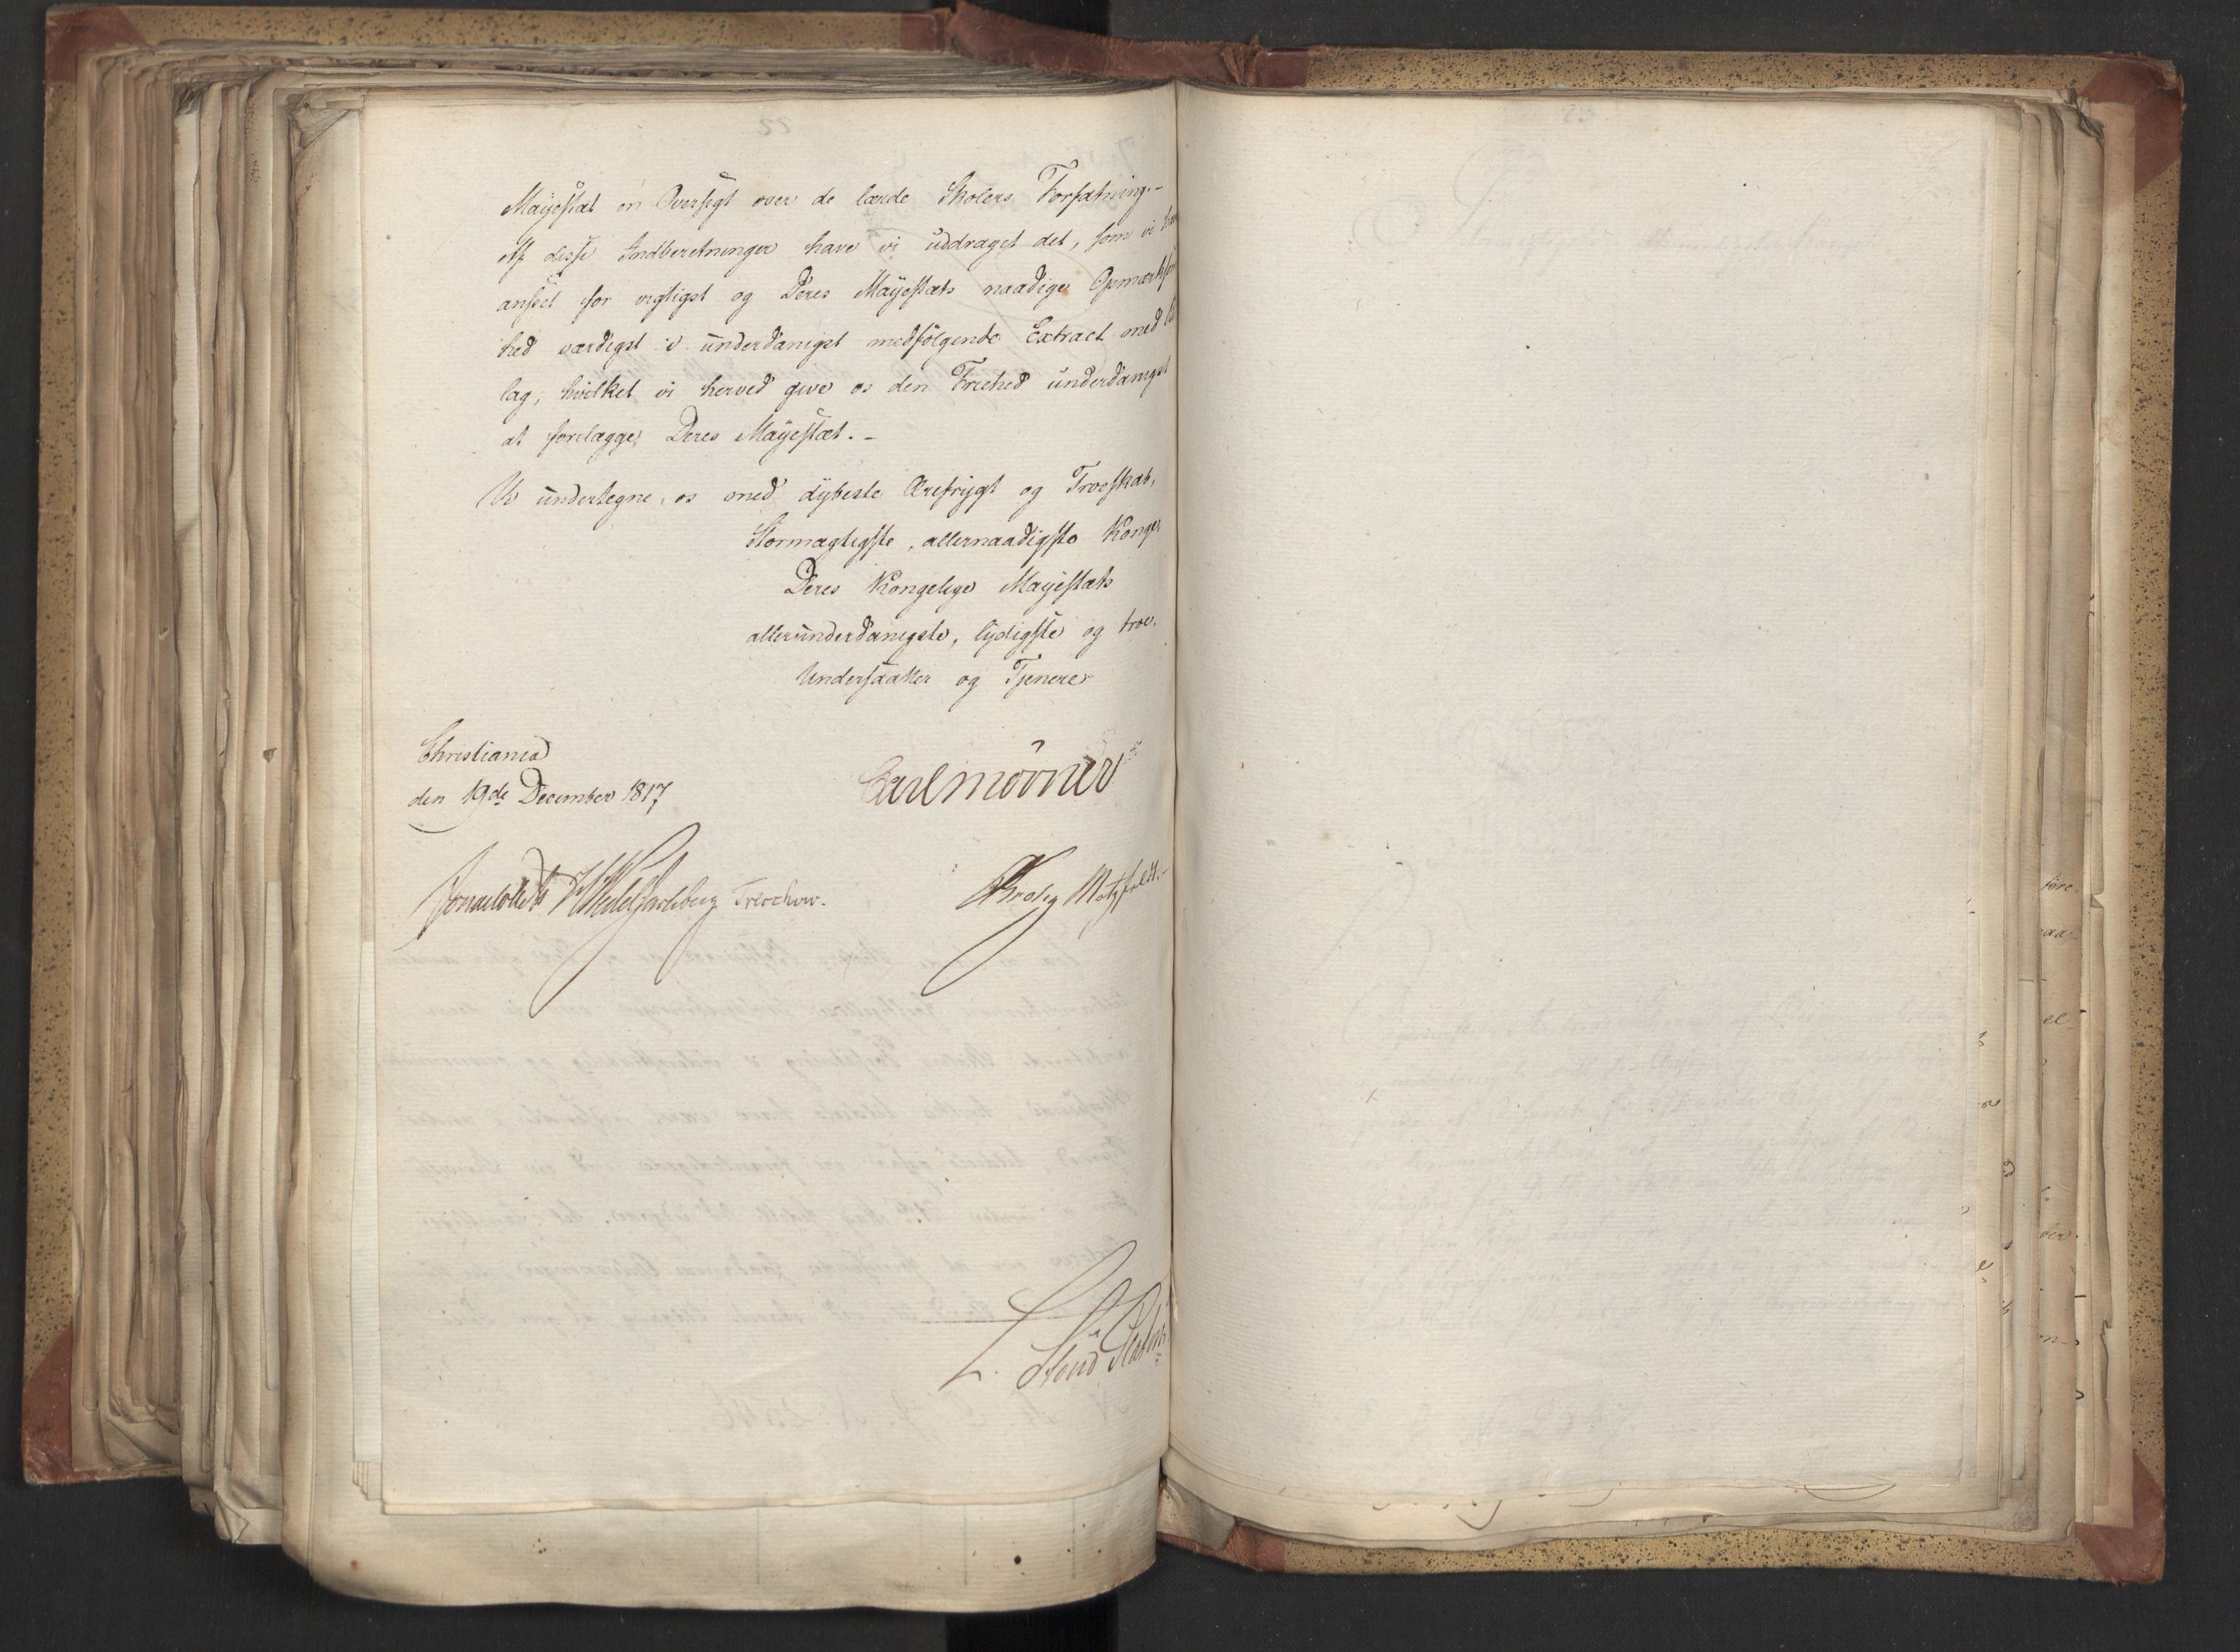 Mayestæt en Oversigt over de lærde Skolers Forfatning.-
Af disse Indberetninger have vi uddraget det, som vi
anseet for vigtigst og Deres Mayestæts naadige Opmærksom
hed værdigst i underdanigst medfølgende Extract med
lag, hvilket vi herved give os den Friehed underdanigst
at forelægge Deres Mayestæt. -
Vi undertegne os med dybeste Ærefrygt og Troeskab,
Stormægtigste, allernaadigste Konge,
Deres Kongelige Mayestæts
allerunderdanigste, lydigste og troe
Undersaatter og Tjenere
Christiania
den 19de December 1817
Carl Mörner
Jonas Collett Wedel Jarlsberg Treschow.
Krog Motzfeldt.